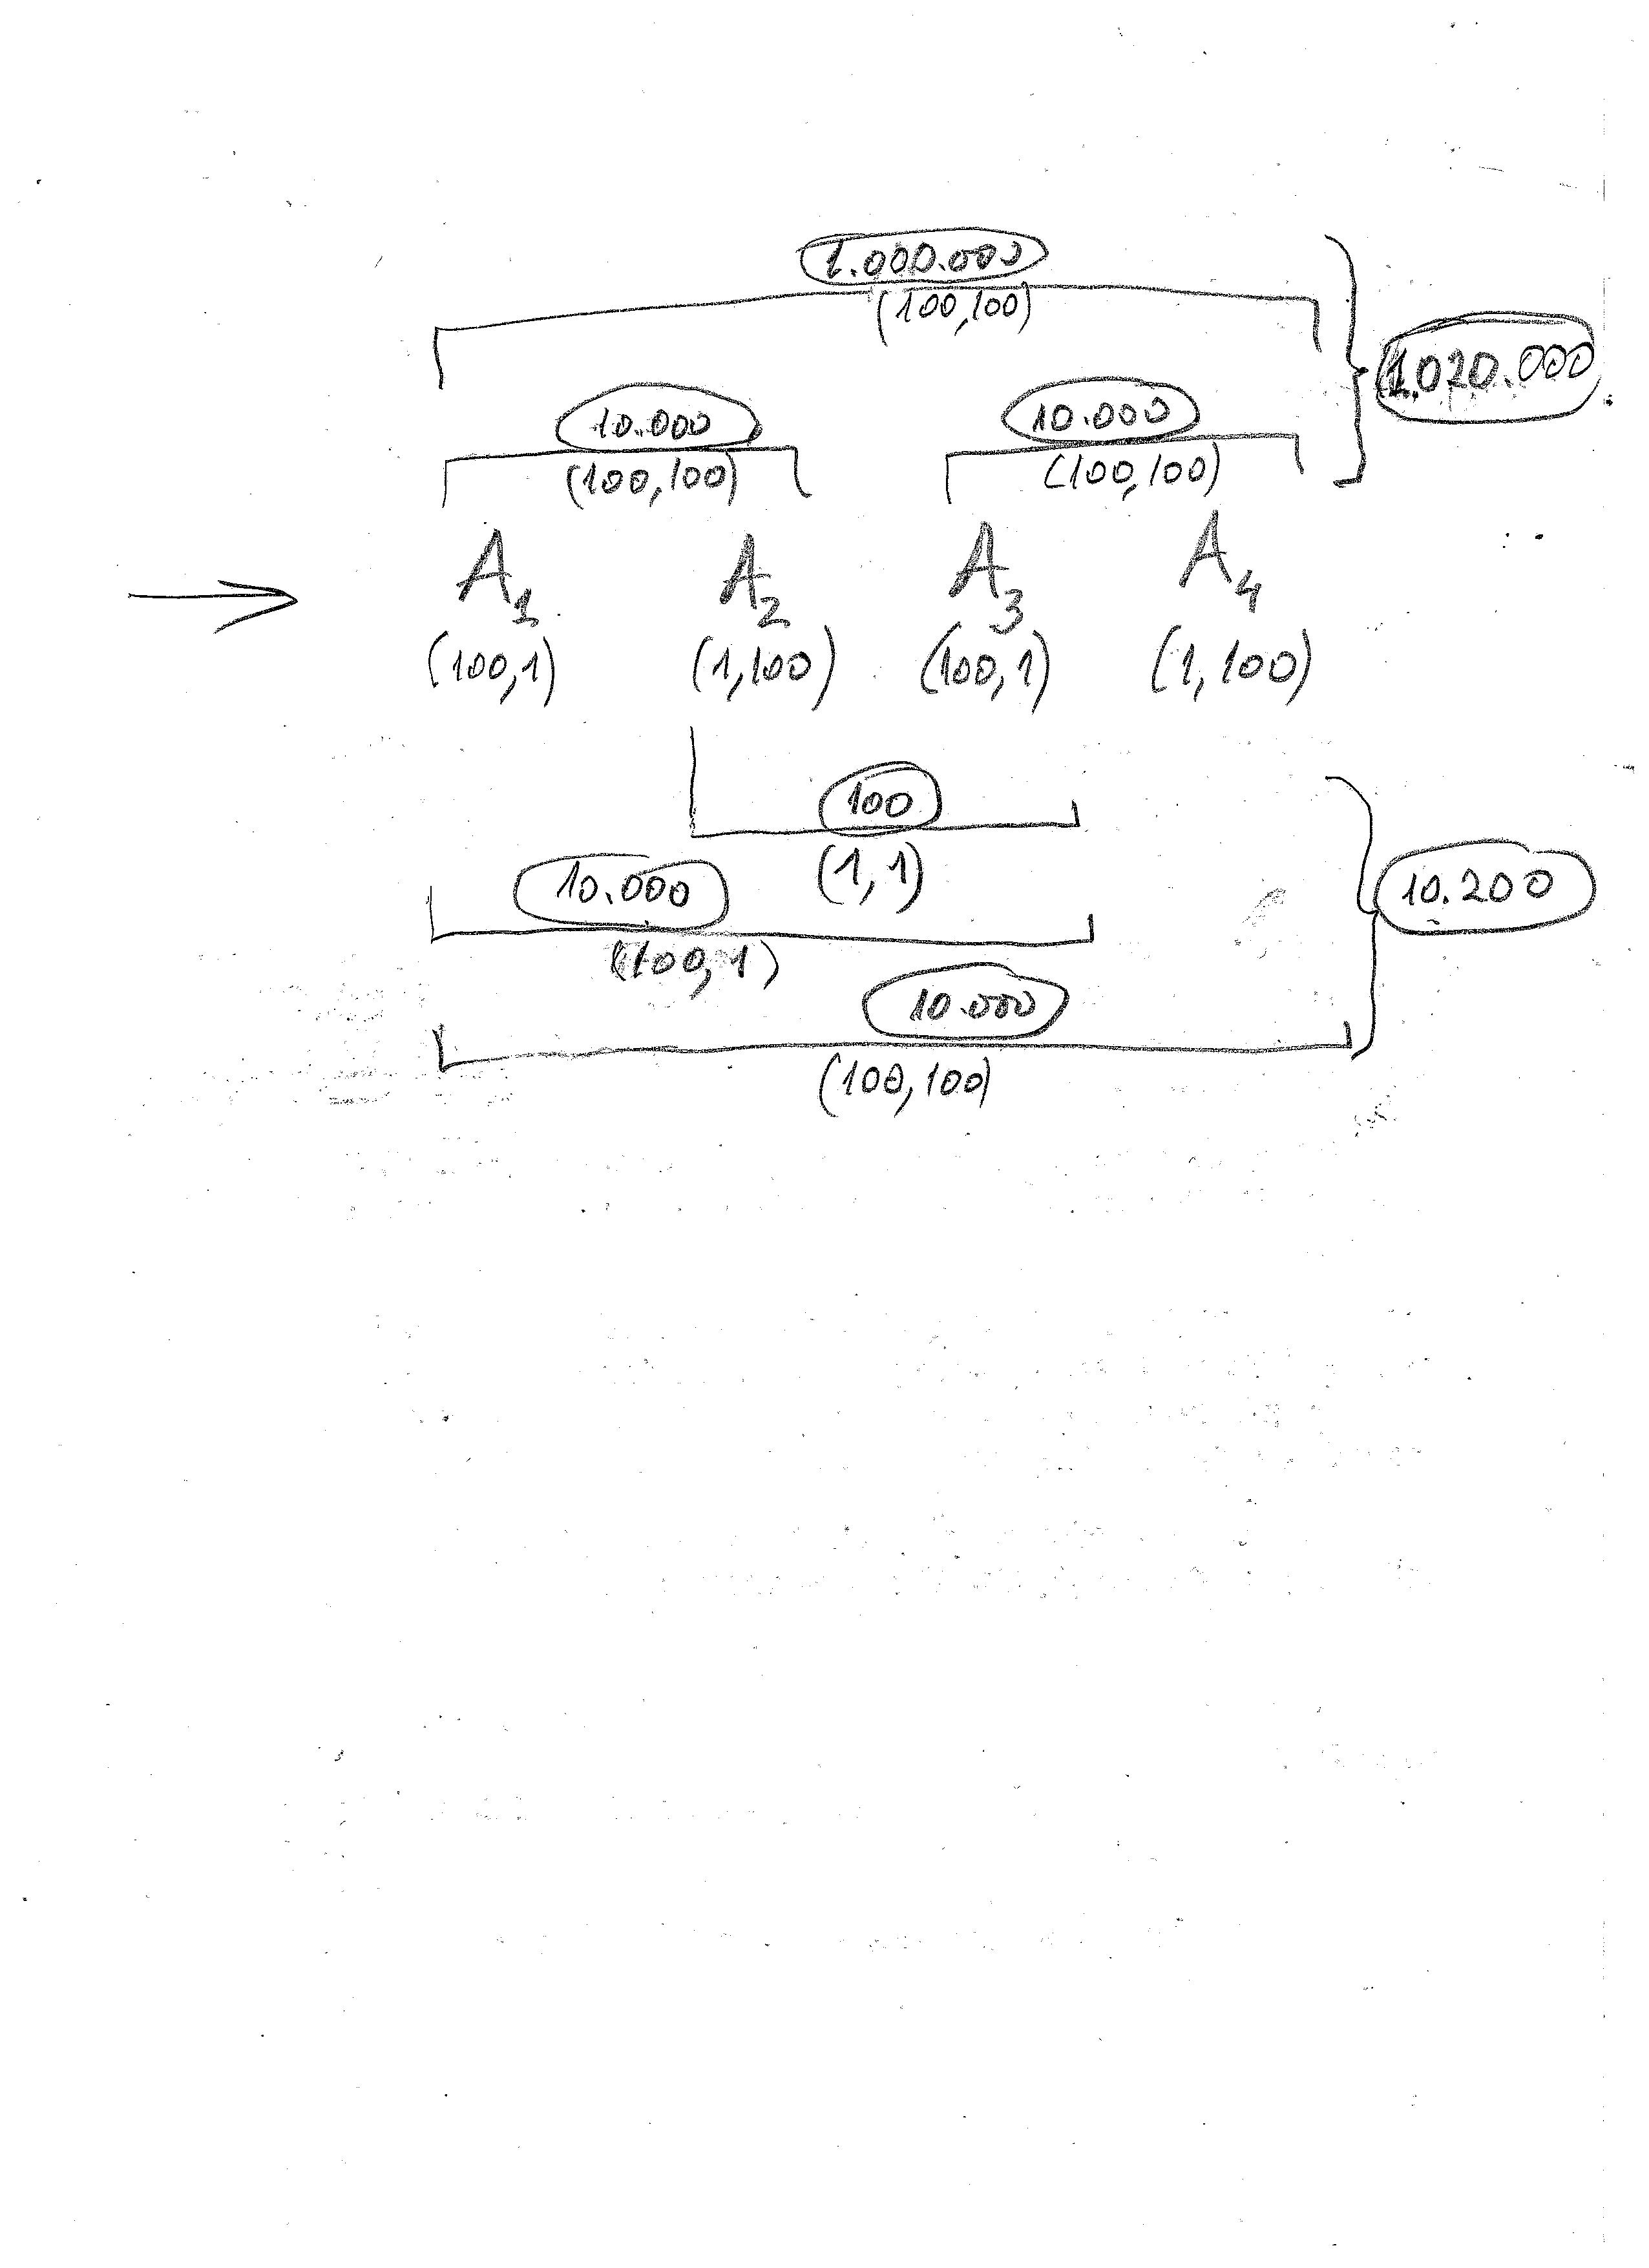 1.000.000
(100,100)
1.020.000
10.000 10.000
(100,100) (100,100)
A₁ A₂ A₃ A₄
(100,1) (1,100) (100,1) (1,100)
100
(1,1)
10.000 10.200
(100,1)
10.000
(100,100)